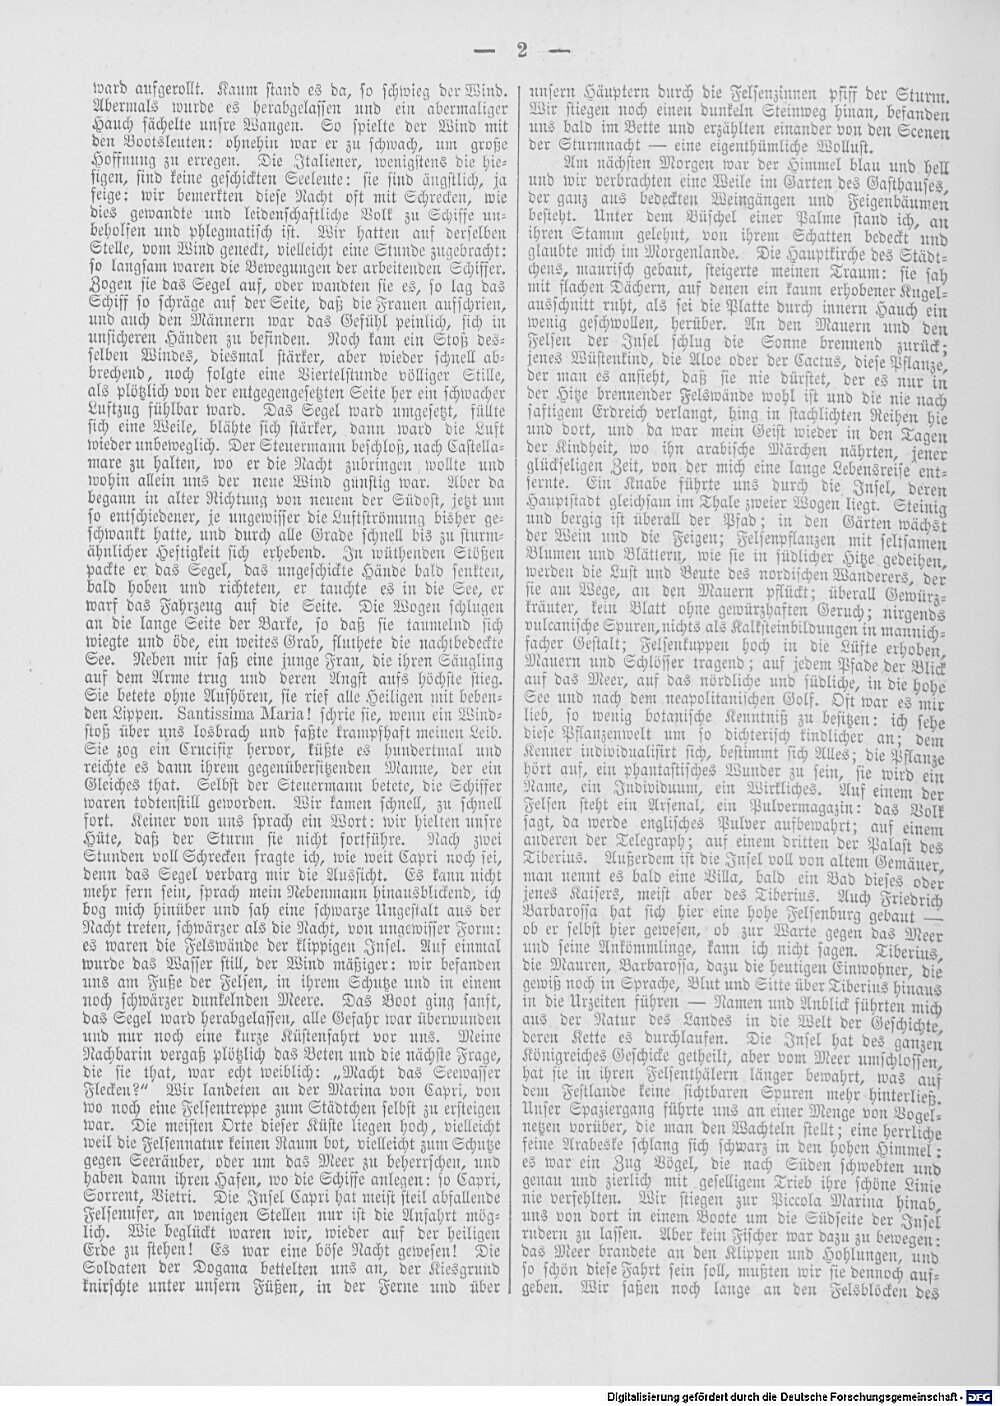 — 2 —
ward aufgerollt. Kaum stand es da, so schwieg der Wind.
Abermals wurde es herabgelassen und ein abermaliger
Hauch fächelte unsre Wangen. So spielte der Wind mit
den Bootsleuten: ohnehin war er zu schwach, um große
Hoffnung zu erregen. Die Italiener, wenigstens die hie-
sigen, sind keine geschickten Seeleute: sie sind ängstlich, ja
feige: wir bemerkten diese Nacht oft mit Schrecken, wie
dies gewandte und leidenschaftliche Volk zu Schiffe un-
beholfen und phlegmatisch ist. Wir hatten auf derselben
Stelle, vom Wind geneckt, vielleicht eine Stunde zugebracht:
so langsam waren die Bewegungen der arbeitenden Schiffer.
Zogen sie das Segel auf, oder wandten sie es, so lag das
Schiff so schräge auf der Seite, daß die Frauen aufschrien,
und auch den Männern war das Gefühl peinlich, sich in
unsicheren Händen zu befinden. Noch kam ein Stoß des-
selben Windes, diesmal stärker, aber wieder schnell ab-
brechend, noch folgte eine Viertelstunde völliger Stille,
als plötzlich von der entgegengesetzten Seite her ein schwacher
Luftzug fühlbar ward. Das Segel ward umgesetzt, füllte
sich eine Weile, blähte sich stärker, dann ward die Luft
wieder unbeweglich. Der Steuermann beschloß, nach Castella-
mare zu halten, wo er die Nacht zubringen wollte und
wohin allein uns der neue Wind günstig war. Aber da
begann in alter Richtung von neuem der Südost, jetzt um
so entschiedener, je ungewisser die Luftströmung bisher ge-
schwankt hatte, und durch alle Grade schnell bis zu sturm-
ähnlicher Heftigkeit sich erhebend. In wüthenden Stößen
packte er das Segel, das ungeschickte Hände bald senkten,
bald hoben und richteten, er tauchte es in die See, er
warf das Fahrzeug auf die Seite. Die Wogen schlugen
an die lange Seite der Barke, so daß sie taumelnd sich
wiegte und öde, ein weites Grab, fluthete die nachtbedeckte
See. Neben mir saß eine junge Frau, die ihren Säugling
auf dem Arme trug und deren Angst aufs höchste stieg.
Sie betete ohne Aufhören, sie rief alle Heiligen mit beben-
den Lippen. Santissima Maria! schrie sie, wenn ein Wind-
stoß über uns losbrach und faßte krampfhaft meinen Leib.
Sie zog ein Crucifix hervor, küßte es hundertmal und
reichte es dann ihrem gegenübersitzenden Manne, der ein
Gleiches that. Selbst der Steuermann betete, die Schiffer
waren todtenstill geworden. Wir kamen schnell, zu schnell
fort. Keiner von uns sprach ein Wort: wir hielten unsre
Hüte, daß der Sturm sie nicht fortführe. Nach zwei
Stunden voll Schrecken fragte ich, wie weit Capri noch sei,
denn das Segel verbarg mir die Aussicht. Es kann nicht
mehr fern sein, sprach mein Nebenmann hinausblickend, ich
bog mich hinüber und sah eine schwarze Ungestalt aus der
Nacht treten, schwärzer als die Nacht, von ungewisser Form:
es waren die Felswände der klippigen Insel. Auf einmal
wurde das Wasser still, der Wind mäßiger: wir befanden
uns am Fuße der Felsen, in ihrem Schutze und in einem
noch schwärzer dunkelnden Meere. Das Boot ging sanft,
das Segel ward herabgelassen, alle Gefahr war überwunden
und nur noch eine kurze Küstenfahrt vor uns. Meine
Nachbarin vergaß plötzlich das Beten und die nächste Frage,
die sie that, war echt weiblich: „Macht das Seewasser
Flecken?“ Wir landeten an der Marina von Capri, von
wo noch eine Felsentreppe zum Städtchen selbst zu ersteigen
war. Die meisten Orte dieser Küste liegen hoch, vielleicht
weil die Felsennatur keinen Raum bot, vielleicht zum Schutze
gegen Seeräuber, oder um das Meer zu beherrschen, und
haben dann ihren Hafen, wo die Schiffe anlegen: so Capri,
Sorrent, Vietri. Die Insel Capri hat meist steil abfallende
Felsenufer, an wenigen Stellen nur ist die Anfahrt mög-
lich. Wie beglückt waren wir, wieder auf der heiligen
Erde zu stehen! Es war eine böse Nacht gewesen! Die
Soldaten der Dogana bettelten uns an, der Kiesgrund
knirschte unter unsern Füßen, in der Ferne und über
unsern Häuptern durch die Felsenzinnen pfiff der Sturm.
Wir stiegen noch einen dunkeln Steinweg hinan, befanden
uns bald im Bette und erzählten einander von den Scenen
der Sturmnacht — eine eigenthümliche Wollust.
Am nächsten Morgen war der Himmel blau und hell
und wir verbrachten eine Weile im Garten des Gasthauses,
der ganz aus bedeckten Weingängen und Feigenbäumen
besteht. Unter dem Büschel einer Palme stand ich, an
ihren Stamm gelehnt, von ihrem Schatten bedeckt und
glaubte mich im Morgenlande. Die Hauptkirche des Städt-
chens, maurisch gebaut, steigerte meinen Traum: sie sah
mit flachen Dächern, auf denen ein kaum erhobener Kugel-
ausschnitt ruht, als sei die Platte durch innern Hauch ein
wenig geschwollen, herüber. An den Mauern und den
Felsen der Insel schlug die Sonne brennend zurück;
jenes Wüstenkind, die Aloe oder der Cactus, diese Pflanze,
der man es ansieht, daß sie nie dürstet, der es nur in
der Hitze brennender Felswände wohl ist und die nie nach
saftigem Erdreich verlangt, hing in stachlichten Reihen hie
und dort, und da war mein Geist wieder in den Tagen
der Kindheit, wo ihn arabische Märchen nährten, jener
glückseligen Zeit, von der mich eine lange Lebensreise ent-
fernte. Ein Knabe führte uns durch die Insel, deren
Hauptstadt gleichsam im Thale zweier Wogen liegt. Steinig
und bergig ist überall der Pfad; in den Gärten wächst
der Wein und die Feigen; Felsenpflanzen mit seltsamen
Blumen und Blättern, wie sie in südlicher Hitze gedeihen,
werden die Lust und Beute des nordischen Wanderers, der
sie am Wege, an den Mauern pflückt; überall Gewürz-
kräuter, kein Blatt ohne gewürzhaften Geruch; nirgends
vulcanische Spuren, nichts als Kalksteinbildungen in mannich-
facher Gestalt; Felsenkuppen hoch in die Lüfte erhoben,
Mauern und Schlösser tragend; auf jedem Pfade der Blick
auf das Meer, auf das nördliche und südliche, in die hohe
See und nach dem neapolitanischen Golf. Oft war es mir
lieb, so wenig botanische Kenntniß zu besitzen: ich sehe
diese Pflanzenwelt um so dichterisch kindlicher an; dem
Kenner individualisirt sich, bestimmt sich Alles; die Pflanze
hört auf, ein phantastisches Wunder zu sein, sie wird ein
Name, ein Individuum, ein Wirkliches. Auf einem der
Felsen steht ein Arsenal, ein Pulvermagazin: das Volk
sagt, da werde englisches Pulver aufbewahrt; auf einem
anderen der Telegraph; auf einem dritten der Palast des
Tiberius. Außerdem ist die Insel voll von altem Gemäuer,
man nennt es bald eine Villa, bald ein Bad dieses oder
jenes Kaisers, meist aber des Tiberius. Auch Friedrich
Barbarossa hat sich hier eine hohe Felsenburg gebaut —
ob er selbst hier gewesen, ob zur Warte gegen das Meer
und seine Ankömmlinge, kann ich nicht sagen. Tiberius,
die Mauren, Barbarossa, dazu die heutigen Einwohner, die
gewiß noch in Sprache, Blut und Sitte über Tiberius hinaus
in die Urzeiten führen — Namen und Anblick führten mich
aus der Natur des Landes in die Welt der Geschichte,
deren Kette es durchlaufen. Die Insel hat des ganzen
Königreiches Geschicke getheilt, aber vom Meer umschlossen,
hat sie in ihren Felsenthälern länger bewahrt, was auf
dem Festlande keine sichtbaren Spuren mehr hinterließ.
Unser Spaziergang führte uns an einer Menge von Vogel-
netzen vorüber, die man den Wachteln stellt; eine herrliche
feine Arabeske schlang sich schwarz in den hohen Himmel:
es war ein Zug Vögel, die nach Süden schwebten und
genau und zierlich mit geselligem Trieb ihre schöne Linie
nie verfehlten. Wir stiegen zur Piccola Marina hinab,
uns von dort in einem Boote um die Südseite der Insel
rudern zu lassen. Aber kein Fischer war dazu zu bewegen:
das Meer brandete an den Klippen und Hohlungen, und
so schön diese Fahrt sein soll, mußten wir sie dennoch auf-
geben. Wir saßen noch lange an den Felsblöcken des
Digitalisierung gefördert durch die Deutsche Forschungsgemeinschaft - DFG